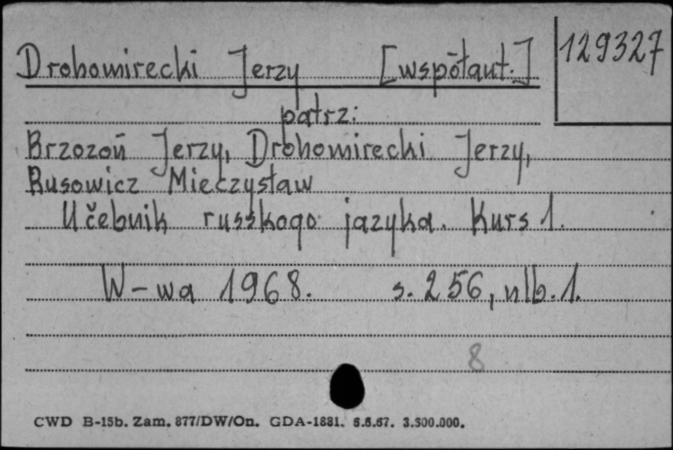 Drohomirecki Jerzy [współaut.] 129327
patrz:
Brzozoń Jerzy, Drohomirecki Jerzy,
Rusowicz Mieczysław
Učebnik russkogo jazyka. Kurs 1.
W-wa 1968. s. 256, nlb. 1.
8
CWD B-15b. Zam. 877/DW/On. GDA-1881. 5.5.67. 3.500.000.